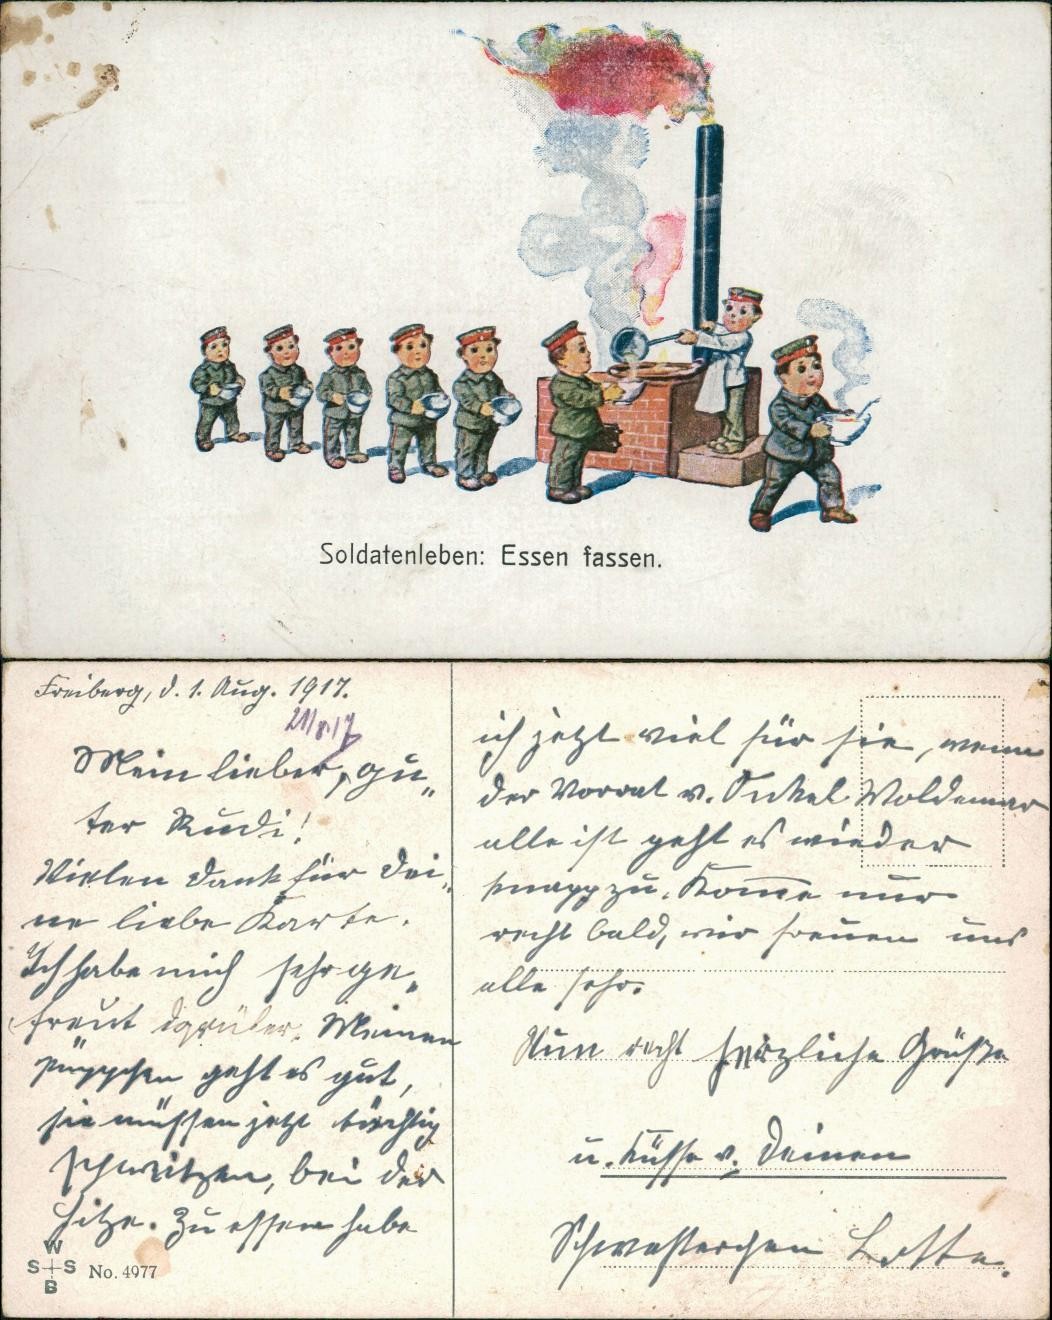 Soldatenleben: Essen fassen.
Freiberg, d. 1. Aug. 1917.
21/8.17
Mein lieber, gu„
ter Rudi!
Vielen Dank für Dei„
ne liebe Karte.
Ich habe mich sehr ge„
freut darüber. Meinen
Püppchen geht es gut,
sie müssen jetzt tüchtig
schwitzen, bei der
Hitze. Zu essen habe
ich jetzt viel für sie, wenn
der Vorrat v. Onkel Woldemar
alle ist geht es wieder
knapp zu. Kom̅e nur
recht bald, wir freuen uns
alle sehr.
Nun recht herzliche Grüße
u. Küsse v. Deinem
Schwesterchen Lotte.
W
S S
B
No. 4977